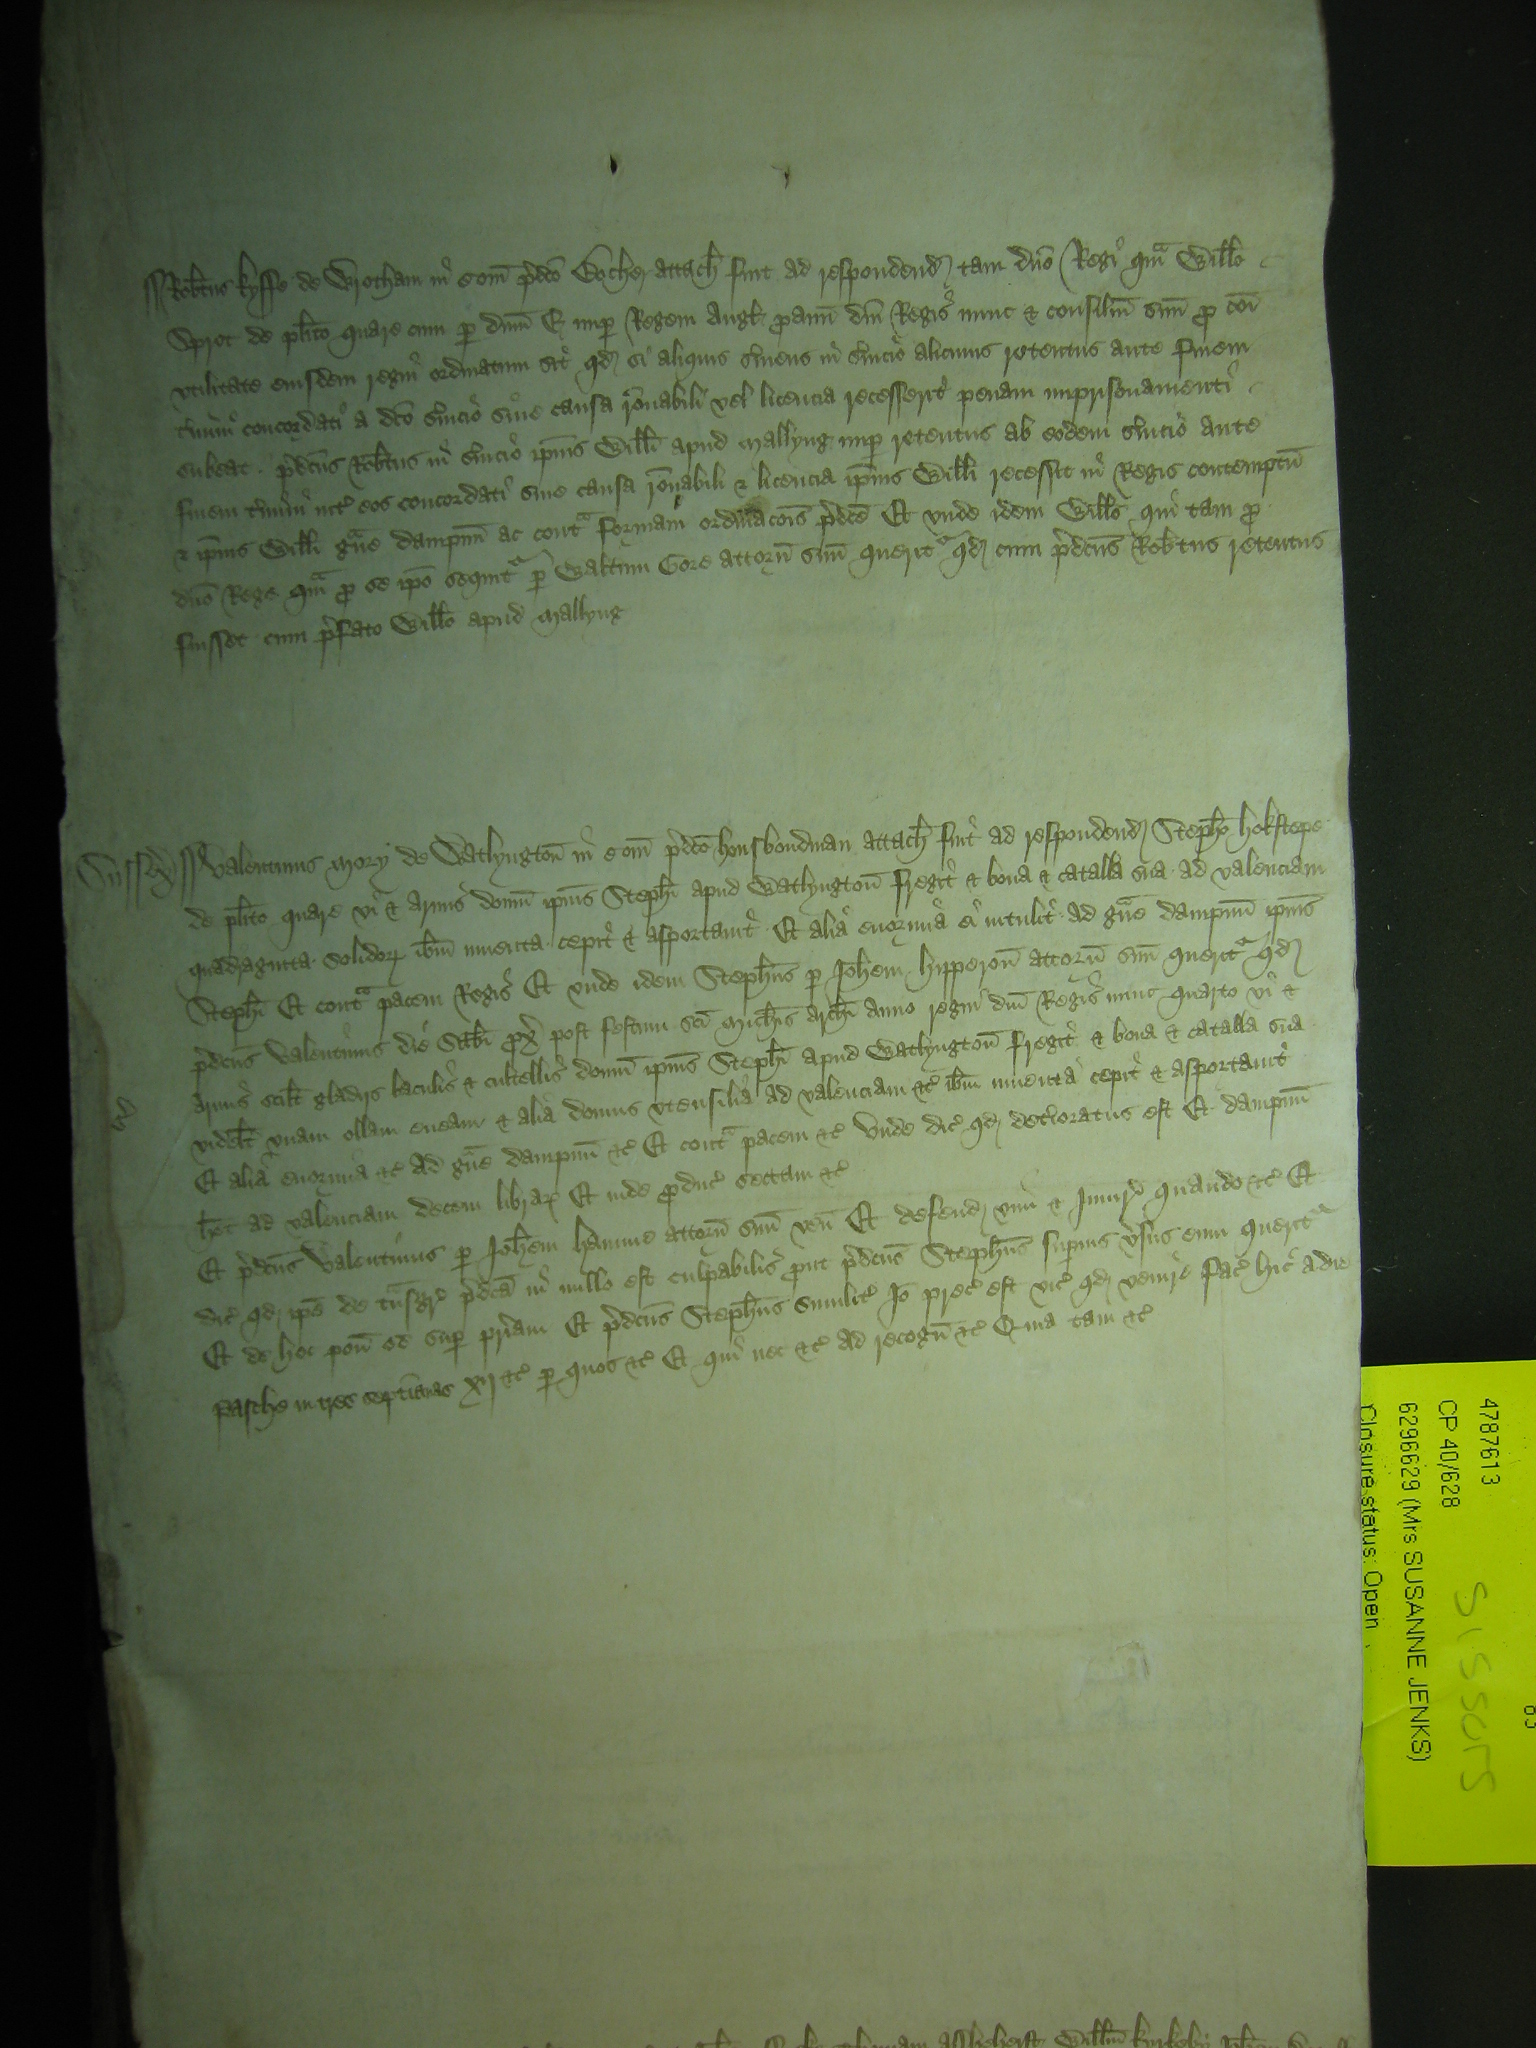 Robtus Kysse de Wrotham in Com p̄dco Bocher attach fuit ad respondend tam dno Regi qm̄ Willo
Sprot de plito quare cum p dnm E nup Regem Angl proaui dni Regis nunc & consiliū suū pro coi
utilitate eiusdem regni ordinatum sit qd si aliquis s'uiens in s'uicio alicuius retentus ante finem
t'mini concordati a dco s'uicio sine causa rōnabili vel licencia recesserit penam imprisonamenti
subeat p̄dcūs Robtus in s'uicio ip̄ius Willi apud Mallyng nup retentus ab eodem s'uicio ante
finem t'mini int' eos concordati sine causa rōnabili & licencia ip̄ius Willi recessit in Regis contemptū
& ip̄ius Willi gūe dampnū ac contᵃ formam ordinacōis p̄dcē Et unde idem Willo qui tam pro
dno Rege qm̄ pro se ipō sequitᵃ p Waltum Gore attorn̄ suū queritᵃ qd cum p̄dcūs Robtus retentus
fuisset cum p̄fato Willo apud Mallyng
Sussex Valentinus Mory de Watlyngton̄ in Com p̄dco housbondman attach fuit ad respondend Stepho Hokstepe
de plito quare vi & armis domū ip̄ius Stephi apud Watlyngton̄ fregit & bona & catalla sua ad valenciam
quadraginta solidor ibm inuenta cepit & asportauit Et alia enormia ei intulit ad gūe dampnū ip̄ius
Stephi Et contᵃ pacem Regis Et unde idem Stephūs p Johem Hipperon̄ attorn̄ suū queritᵃ qd
p̄dcūs Valentinus die Sabbi prox post festum sci Michis Archi anno regni dni Regis nunc quarto vi &
armis scilt gladijs baculis & cultellis domū ip̄ius Stephi apud Watlyngton̄ fregit & bona & catalla sua
videlt unam ollam eneam & alia domus utensilia ad valenciam &c ibm inuenta cepit & asportauit
Et alia enormia &c Ad gūe dampnū &c Et contᵃ pacem &c Unde dic qd det'ioratus est Et dampnū
het ad valenciam decem librar Et inde produc sectam &c
Et p̄dcūs Valentinus p Johem Hamme attorn̄ suū ven̄ Et defend vim & Iniur quando &c Et
dic qd ip̄e de tᵃnsgr p̄dcā in nullo est culpabilis prout p̄dcūs Stephūs superius v'sus eum queritᵃ
Et de hoc pon̄ se sup pr̄iam Et p̄dcūs Stephūs similit' Io prec' est vic' qd venire fac' hic a die
Pasche in tres septīanas xij &c p quos &c Et qui nec &c Ad recogn̄ &c Quia tam &c
4787613
CP 40/628
6296629 (Mrs SUSANNE JENKS)
Closure status: Open
SISSORS